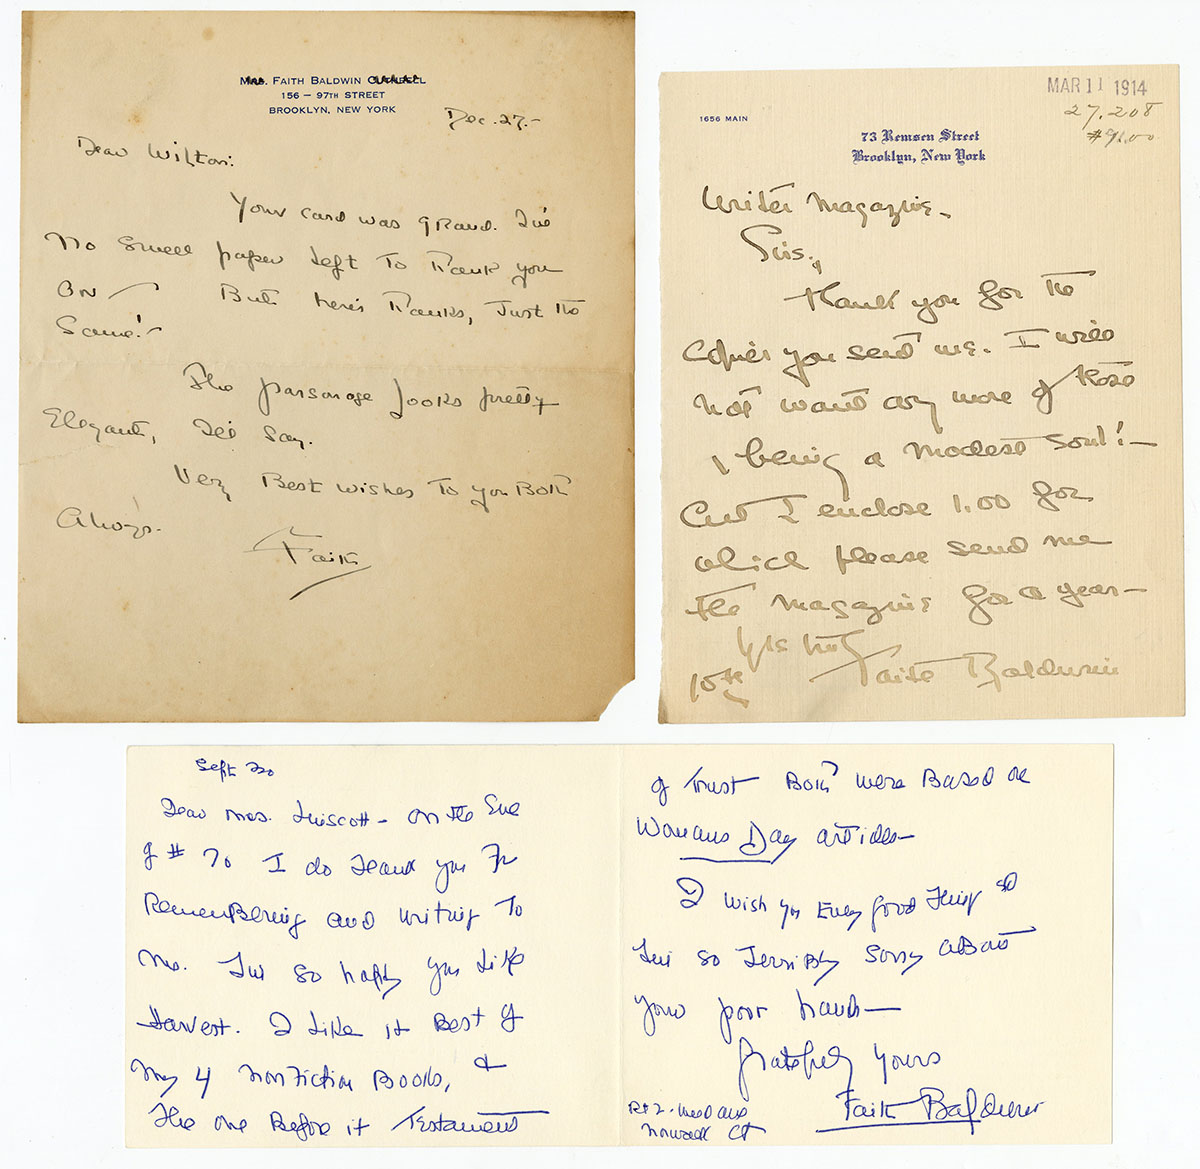 Mrs. FAITH BALDWIN CUTHRELL
156 — 97TH STREET
BROOKLYN, NEW YORK
Dec. 27.-
Dear Wilton:
Your card was grand. I've
no small paper left to thank you
on — But here's thanks, just the
same! —
The parsonage looks pretty
elegant, I'd say.
Very Best wishes to you Both
Always.
Faith
MAR 11 1914
27,208
#
1656 MAIN
73 Remsen Street
Brooklyn, New York
Writer Magazine -
Sirs.,
Thank you for the
copies you send me. I will
not want any more of those
, being a modest soul! —
But I enclose 1.00 for
which please send me
the magazine for a year —
Faith Baldwin
10th
Sept 30
Dear Mrs. - on the Eve
of # 70 I do thank you for
Remembering and writing to
me. I'm so happy you like
Harvest. I like it Best of
my 4 nonfiction Books, &
the one Before it Testament
of Trust Both were Based on
Womans Day articles —
I wish you Every good thing &
I'm so Terribly sorry about
your poor hand —
Gratefully yours
Faith Baldwin
Rt 2.
Norwalk CT